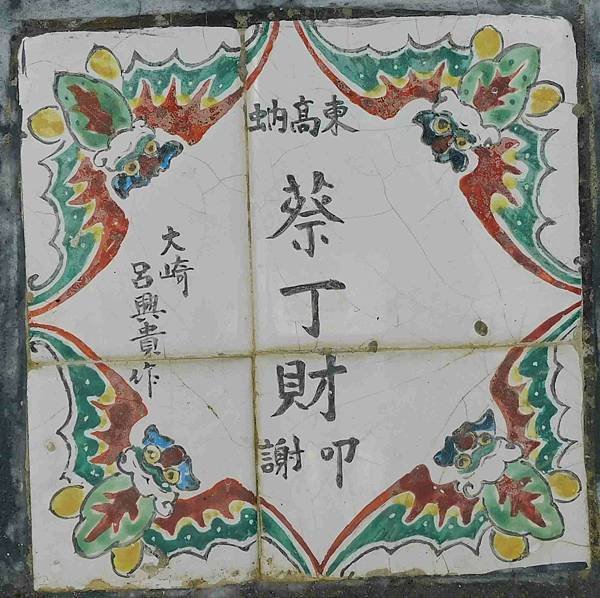 東高蚋
蔡丁財
叩謝
大崎
呂興貴作